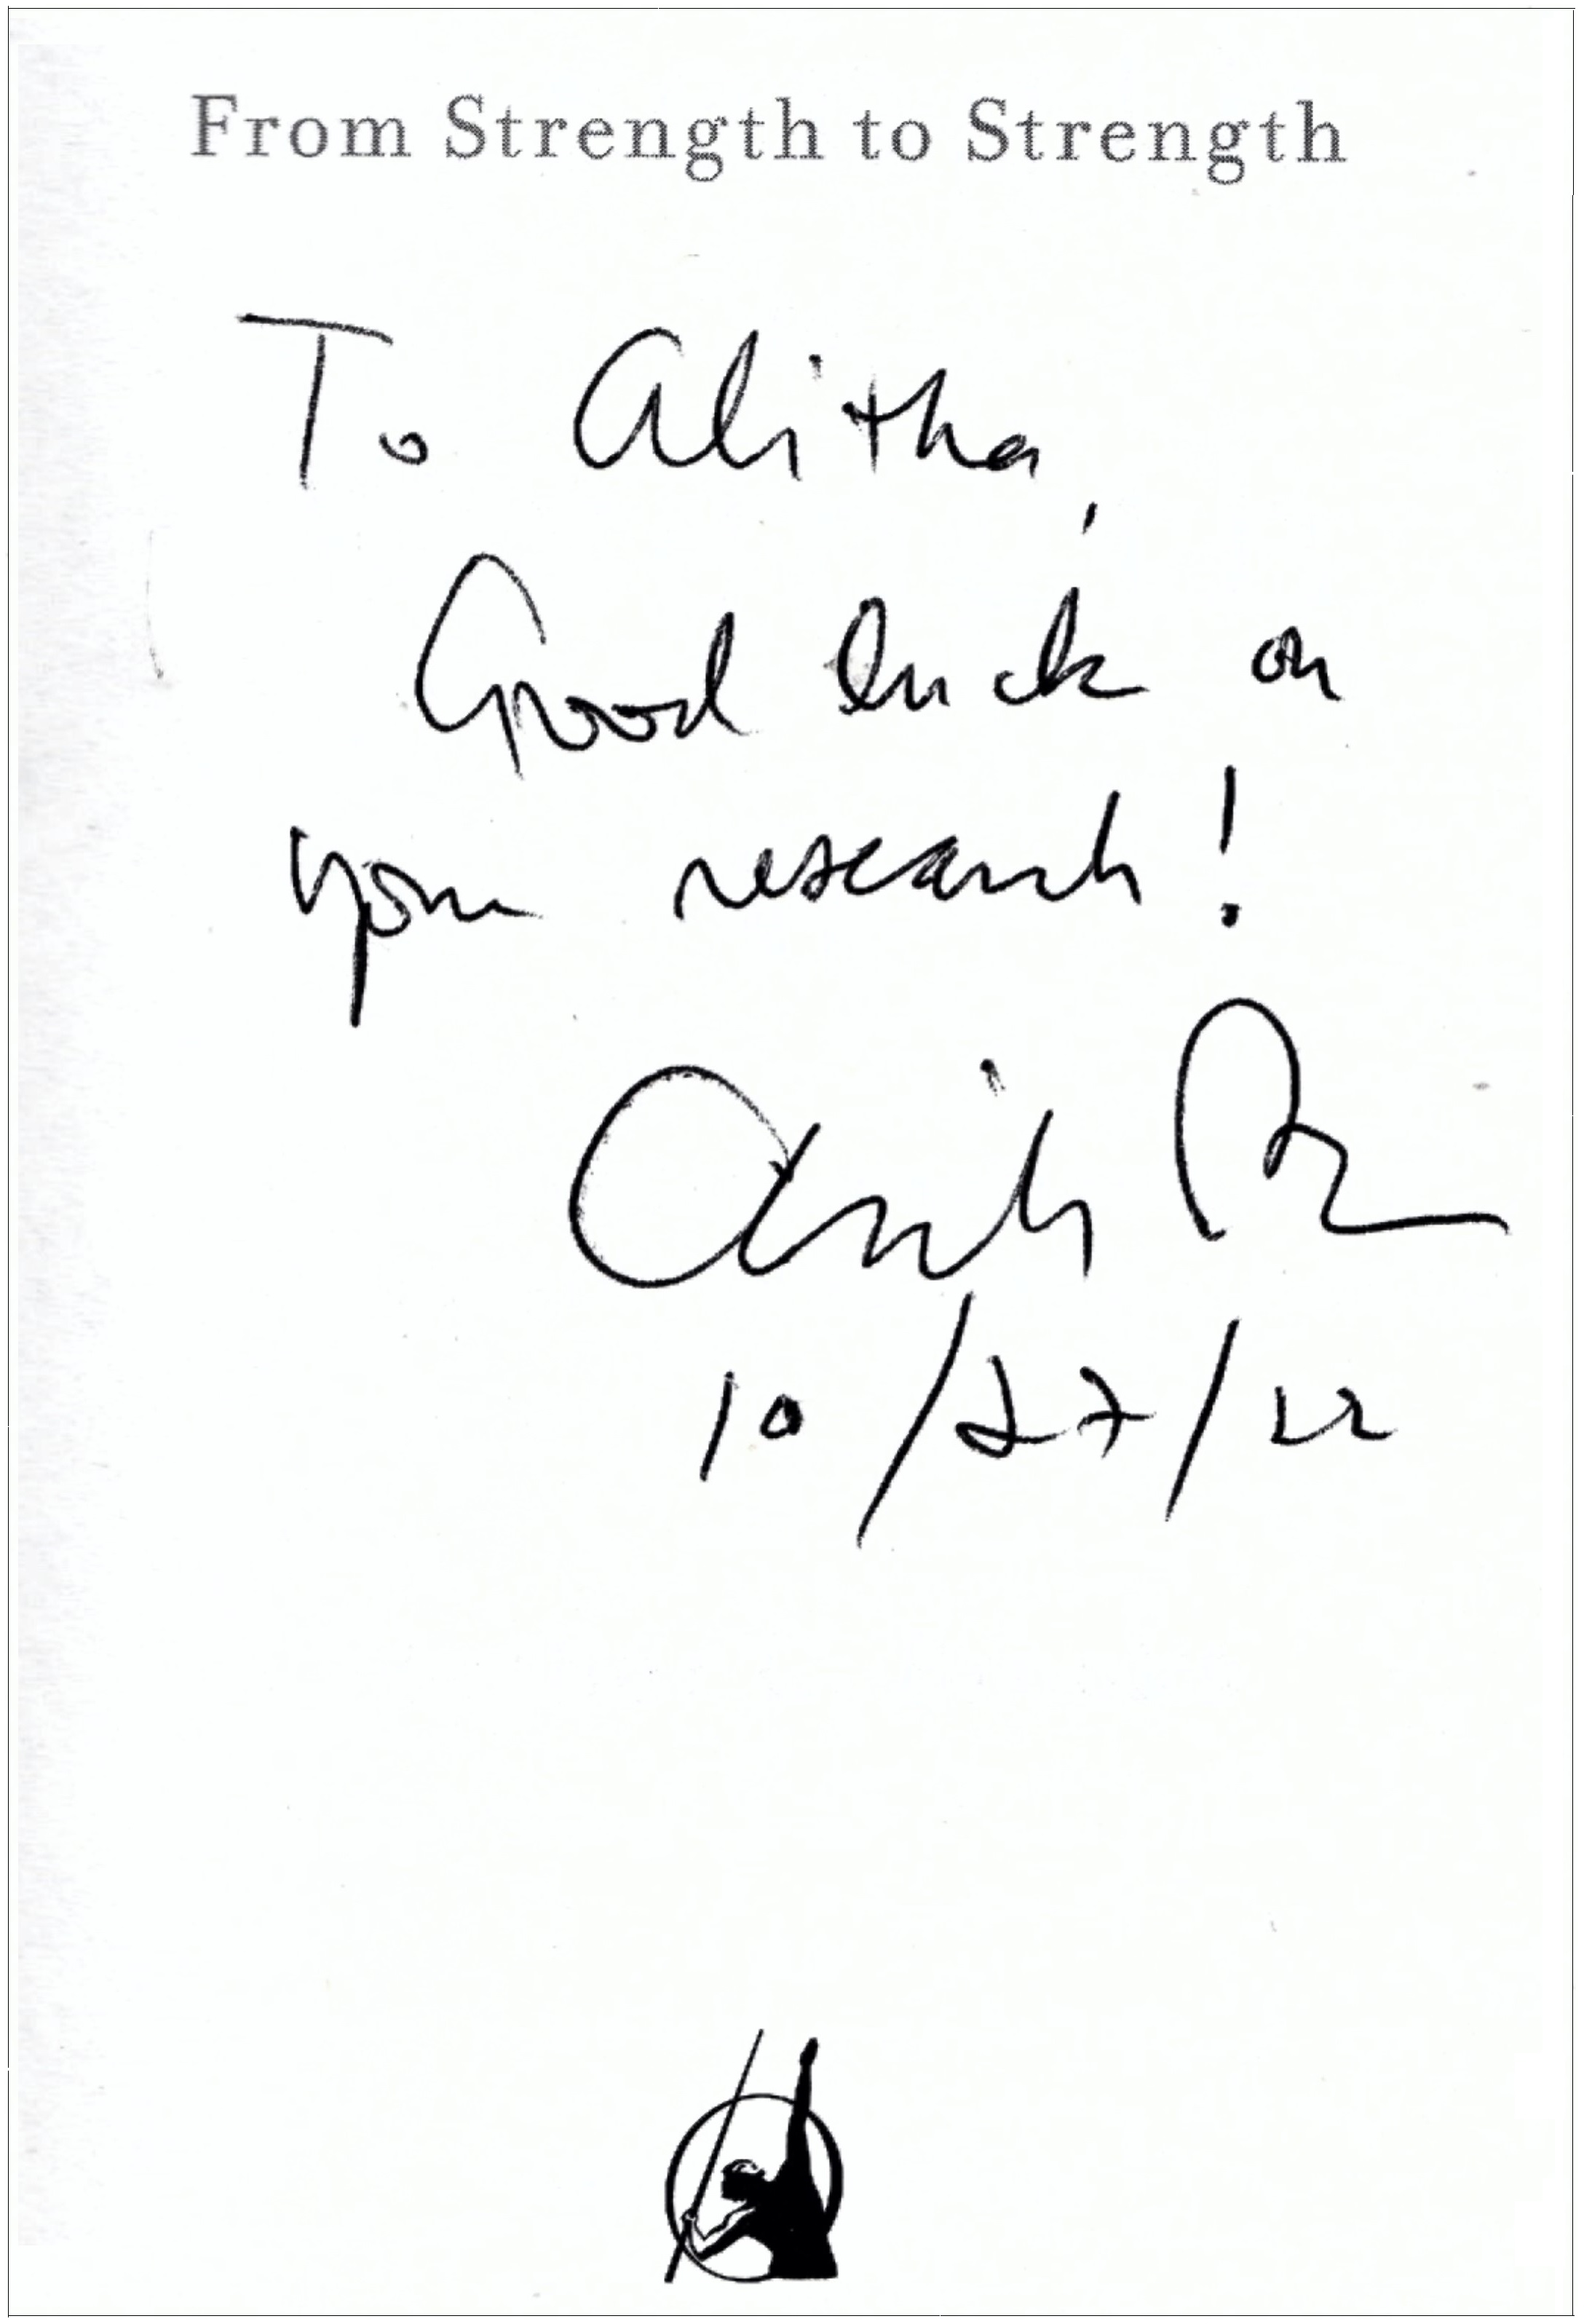 From Strength to Strength
To Alitha,
Good luck on
your research!
10/27/22